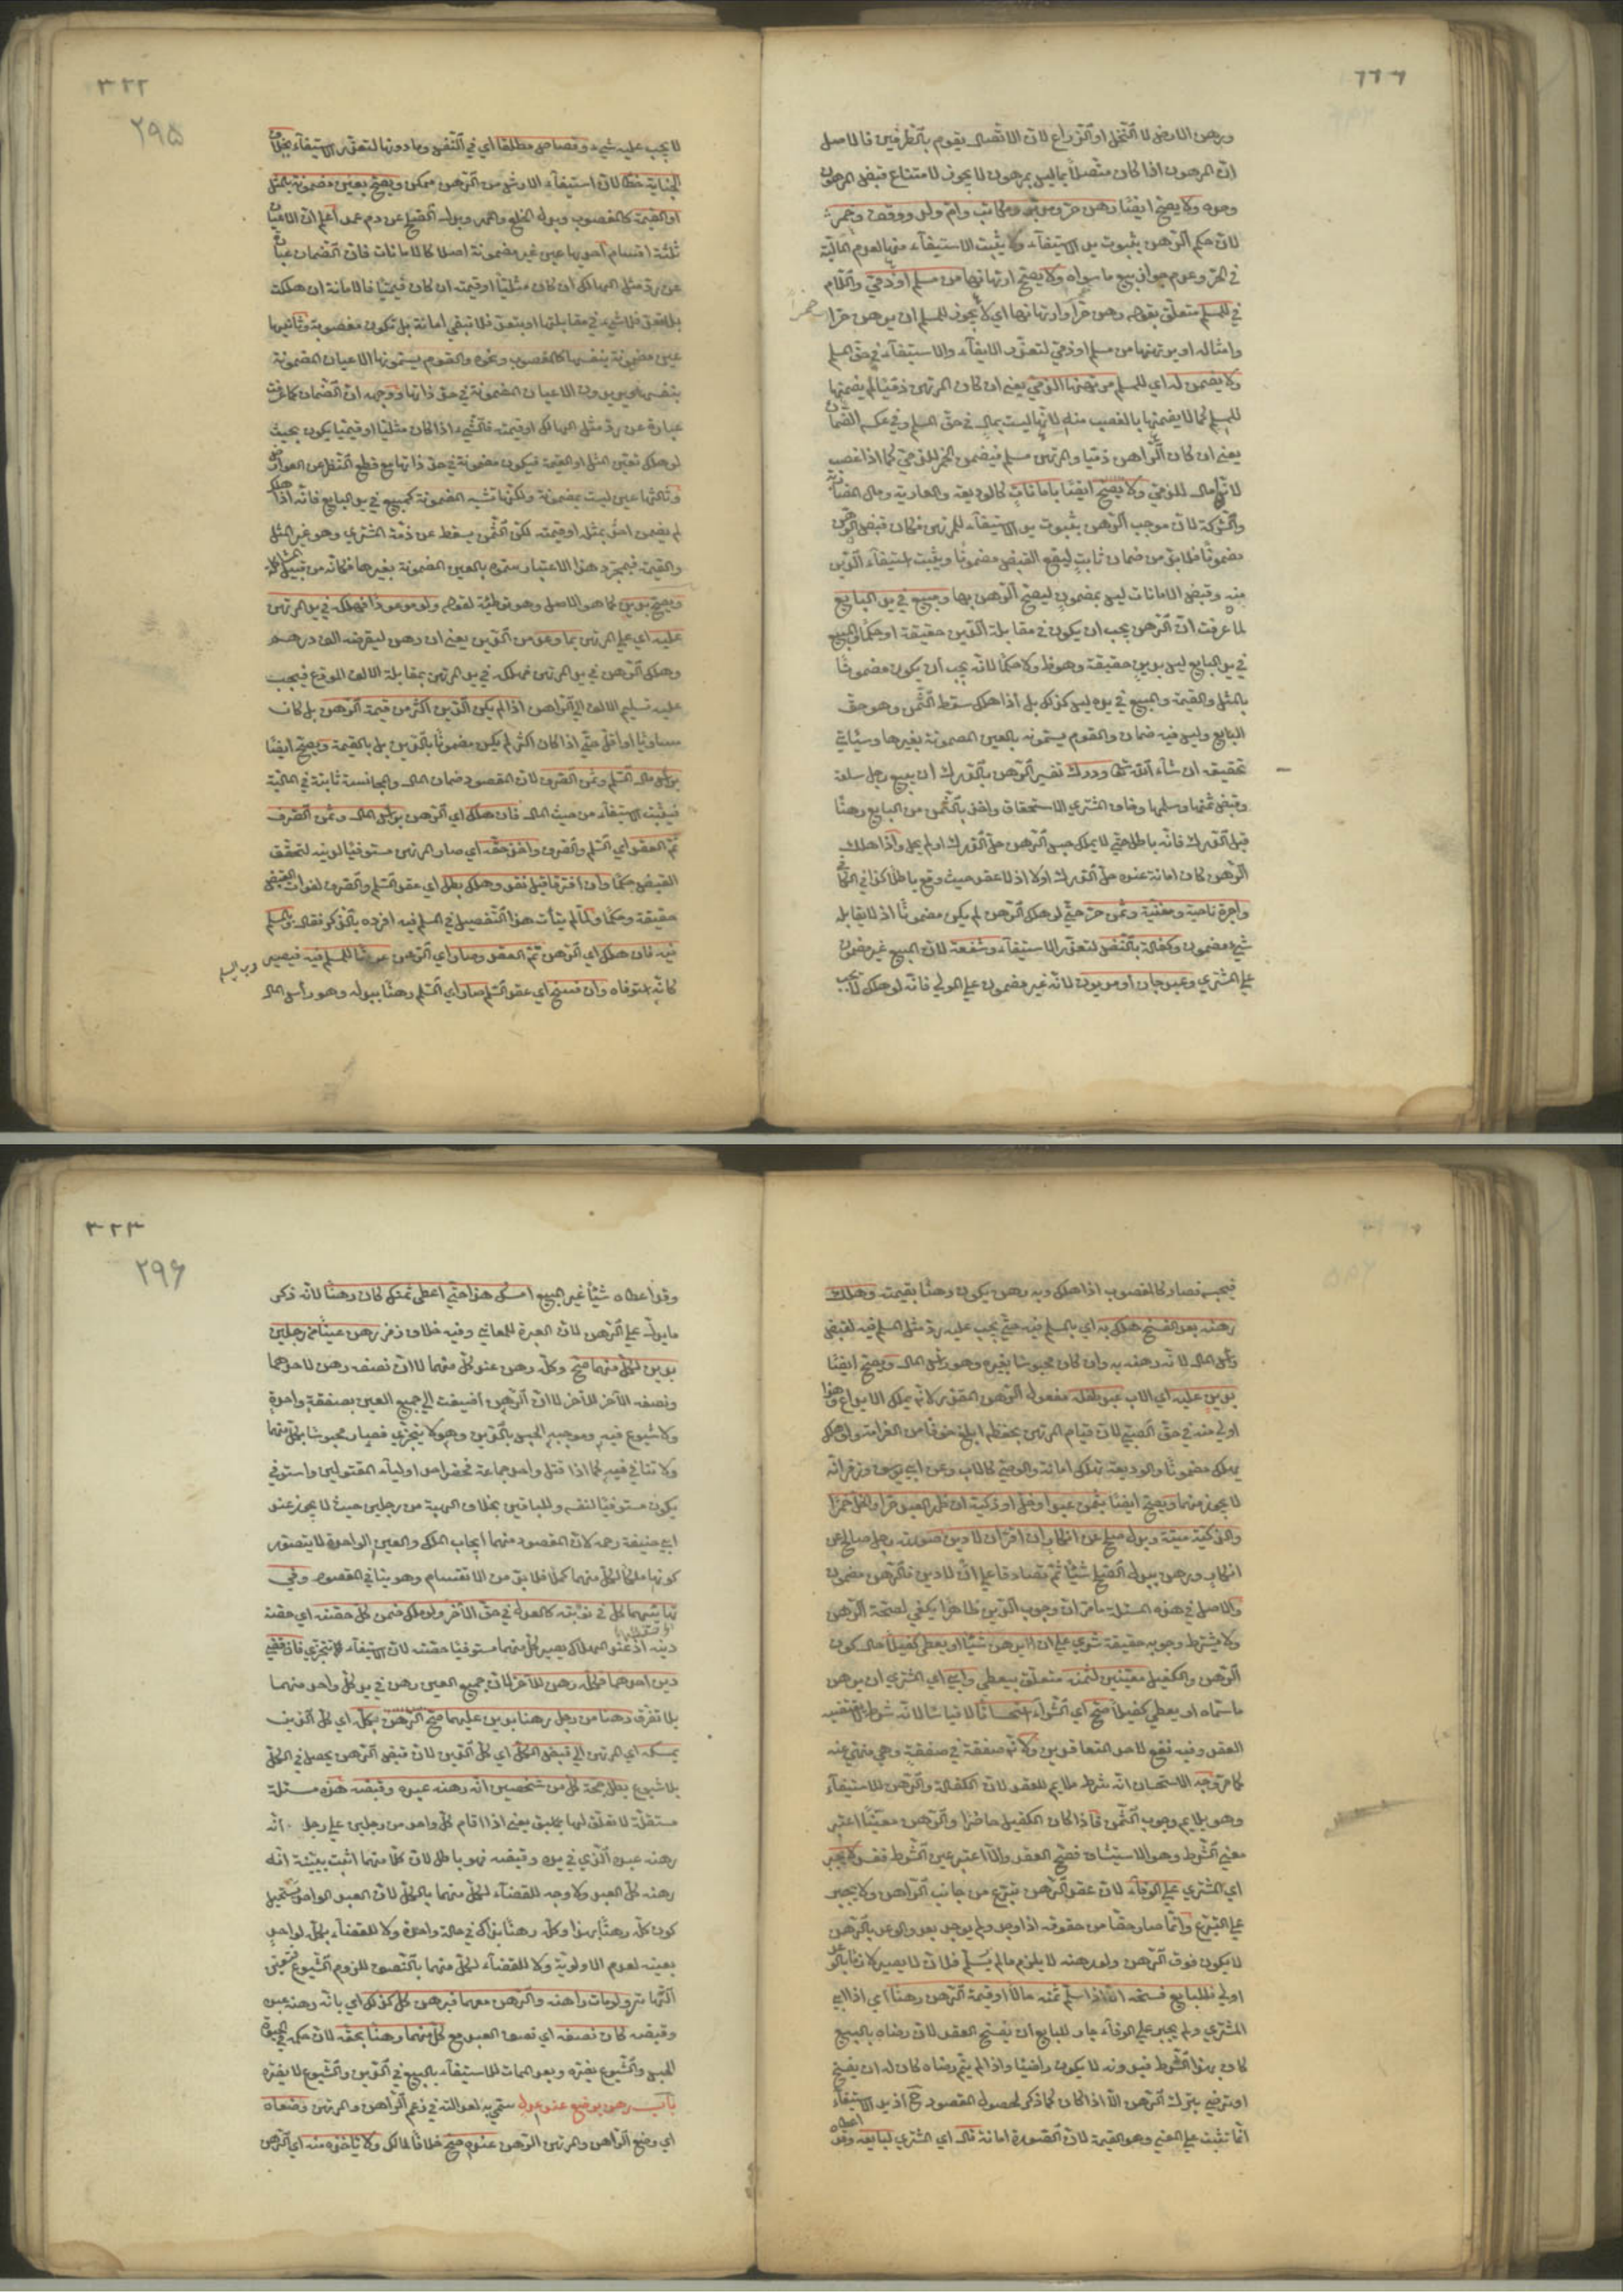 ٦٦٦
ورهن الارض لا النخل او الزراع لان الاتصال يقوم بالطرفين فالاصل
ان المرهون اذا كان متصلا بما ليس بمرهون لا يجوز لامتناع قبض المرهون
وحده ولا يصح ايضا رهن حر ومدبر ومكاتب وام ولد ووقف وخمر
لان حكم الرهن ثبوت يد الاستيفاء ولا يثبت الاستيفاء منها لعدم المالية
في الحر وعدم جواز بيع ما سواه ولا يصح ارتهانها من مسلم او ذمي واللام
في للمسلم متعلق بقوله رهن خمر او ارتهانها اي لا يجوز للمسلم ان يرهن خمرا
وامثاله او يرتهنها من مسلم او ذمي لتعذر الايفاء والاستيفاء في حق المسلم
ولا يضمن له اي للمسلم مرتهنها الذمي يعني ان كان المرتهن ذميا لم يضمنها
للمسلم كما لا يضمنها بالغصب منه لانها ليست بمال في حق المسلم وفي عكسه الضمان
يعني ان كان الراهن ذميا والمرتهن مسلم فيضمن الخمر للذمي كما اذا غصب
لانها مال للذمي ولا يصح ايضا بامانات كالوديعة والعارية ومال المضاربة
والشركة لان موجب الرهن ثبوت يد الاستيفاء للمرتهن فكان قبض الرهن
مضمونا فلا بد من ضمان ثابت ليقع القبض مضمونا ويثبت استيفاء الدين
منه وقبض الامانات ليس بمضمون ليصح الرهن بها ومبيع في يد البايع
لما عرفت ان الرهن يجب ان يكون في مقابلة الدين حقيقة او حكما والمبيع
في يد البايع ليس بدين حقيقة وهو ظ ولا حكما لانه يجب ان يكون مضمونا
بالمثل والقيمة والمبيع في يده ليس كذلك بل اذا هلك سقط الثمن وهو حق
البايع وليس فيه ضمان والقوم يسمونه بالعين المضمونة بغيرها وسيأتي
تحقيقه ان شاء الله تعالى ودرك تفسير الرهن بالدرك ان يبيع رجل سلعة
وقبض ثمنها وسلمها وخاف المشتري الاستحقاق واخذ بالثمن من البايع رهنا
قبل الدرك فانه باطل حتى لا يملك حبس الرهن حل الدرك او لم يحل واذا هلك
الرهن كان امانة عنده حل الدرك اولا اذ لا عقد حيث وقع باطلا كذا في الكافي
واجرة نايحة ومغنية وثمن حر حتى لو هلك الرهن لم يكن مضمونا اذ لا يقابله
شيء مضمون وكفالة بالنفس لتعذر الاستيفاء وشفعة لان المبيع غير مضمون
على المشتري وعبد جان او مديون لانه غير مضمون على المولى فانه لو هلك لا يجب
خمر
٣٢٢
٢٩٥
لا يجب عليه شيء وقصاص مطلقا اي في النفس وما دونها لتعذر الاستيفاء بخلاف
الجناية خطا لان استيفاء الارش من الرهن ممكن ويصح بعين مضمونة بالمثل
او القيمة كالمغصوب وبدل الخلع والمهر وبدل الصلح عن دم عمد اعلم ان الاعيان
ثلثة اقسام احديها عين غير مضمونة اصلا كالامانات فان الضمان عبارة
عن رد مثل الهالك ان كان مثليا او قيمته ان كان قيميا فالامانة ان هلكت
بلا تعد فلا شيء في مقابلتها او بتعد فلا تبقى امانة بل تكون مغصوبة وثانيها
عين مضمونة بنفسها كالمغصوب ونحوه والقوم يسمونها الاعيان المضمونة
بنفسها يريدون الاعيان المضمونة في حق ذاتها ووجهه ان الضمان كما عرفت
عبارة عن رد مثل الهالك او قيمته فالشيء اذا كان مثليا او قيميا يكون بحيث
لو هلك تعين المثل او القيمة فيكون مضمونة في حق ذاتها مع قطع النظر عن العوارض
وثالثها عين ليست بمضمونة ولكنها تشبه المضمونة كمبيع في يد البايع فانه اذا هلك
لم يضمن احد بمثله او قيمته لكن الثمن يسقط عن ذمة المشتري وهو غير المثل
والقيمة فبمجرد هذا الاعتبار سموه بالعين المضمونة بغيرها فكانه من قبيل المشاكلة
ويصح بدين كما هو الاصل وهو توطئة لقوله ولو موعودا فهلكه في يد المرتهن
عليه اي على المرتهن بما وعد من الدين يعني ان رهن ليقرضه الف درهم
وهلك الرهن في يد المرتهن فهلكه في يد المرتهن بمقابلة الالف الموعود فيجب
عليه تسليم الالف الى الراهن اذا لم يكن الدين اكثر من قيمة الرهن بل كان
مساويا او اقل حتى اذا كان اكثر لم يكن مضمونا بالدين بل بالقيمة ويصح ايضا
براس مال السلم وثمن الصرف لان المقصود ضمان المال والمجانسة ثابتة في المالية
فيثبت الاستيفاء من حيث المال فان هلك اي الرهن براس المال وثمن الصرف
تم العقد اي السلم والصرف واخذ حقه اي صار المرتهن مستوفيا لدينه لتحقق
القبض حكما وان افترقا قبل نقد وهلك بطل اي عقد السلم والصرف لفوات القبض
حقيقة وحكما ولما لم يتات هذا التفصيل في المسلم فيه افرده بالذكر فقال وبالمسلم
فيه فان هلك اي الرهن تم العقد وصار اي الرهن عوضا للمسلم فيه فيصير رب السلم
كانه استوفاه وان فسخ اي عقد السلم صار اي السلم رهنا ببدله وهو راس المال
فيحبسه فصار كالمغصوب اذا هلك وبه رهن يكون رهنا بقيمته وهلك
رهنه بعد الفسخ هلك به اي بالمسلم فيه حتى يجب عليه رد مثل المسلم فيه لقبض
راس المال لانه رهنه به وان كان محبوسا بغيره وهو راس المال ويصح ايضا
بدين عليه اي الاب عبد طفله مفعول الرهن المقدر لانه يملك الايداع وهذا
اولى منه في حق الصبي لان قيام المرتهن بحفظه ابلغ خوفا من الغرامة ولو هلك
يهلك مضمونا والوديعة تهلك امانة والوصي كالاب وعن ابي يوسف وزفر انه
لا يجوز منهما ويصح ايضا بثمن عبد او خل او ذكية ان ظهر العبد حرا والخل خمرا
والذكية ميتة وبدل صلح عن انكار ان اقر ان لا دين صورته رجل صالح عن
انكار ورهن ببدل الصلح شيئا ثم تصادقا على ان لا دين فالرهن مضمون
والاصل في هذه المسئلة ما مر ان وجوب الدين ظاهرا يكفي لصحة الرهن
ولا يشترط وجوبه حقيقة شري على ان يرهن شيئا او يعطي كفيلا حال كون
الرهن والكفيل معينين لثمنه متعلق بيعطي وابى اي المشتري ان يرهن
ما سماه او يعطي كفيلا صح اي الشراء استحسانا لا قياسا لانه شرط لا يقتضيه
العقد وفيه نفع لاحد المتعاقدين ولانه صفقة في صفقة وهي منهي عنه
كما مر وجه الاستحسان انه شرط ملايم للعقد لان الكفالة والرهن للاستيفاء
وهو يلايم وجوب الثمن فاذا كان الكفيل حاضرا والرهن معينا اعتبر
معنى الشرط وهو الاستيثاق فصح العقد والا اعتبر عين الشرط ففسد ولا يجبر
اي المشتري على الوفاء لان عقد الرهن تبرع من جانب الراهن ولا يجبر
على التبرع وانما صار حقا من حقوقه اذا وجد ولم يوجد بعد والوعد بالرهن
لا يكون فوق الرهن ولو رهنه لا يلزم ما لم يسلم فلان لا يصير لازما بالوعد
اولى فللبايع فسخه الا اذا سلم ثمنه حالا او قيمة الرهن رهنا اي اذا ابى
المشتري ولم يجبر على الوفاء جاز للبايع ان يفسخ العقد لان رضاه بالبيع
كان بهذا الشرط فبدونه لا يكون راضيا واذا لم يتم رضاه كان له ان يفسخ
او يرضى بترك الرهن الا اذا كان كما ذكر لحصول المقصود ح اذ يد الاستيفاء
انما تثبت على المعنى وهو القيمة لان الصورة امانة قال اي المشتري لبايعه وقد اعطاه
٣٢٣
٢٩٦
وقد اعطاه شيئا غير المبيع امسك هذا حتى اعطي ثمنك كان رهنا لانه ذكر
ما يدل على الرهن لان العبرة للمعاني وفيه خلاف زفر رهن عينا من رجلين
بدين لكل منهما صح وكله رهن عند كل منهما لا ان نصفه رهن لاحدهما
ونصفه الآخر للآخر لان الرهن اضيفت الى جميع العين بصفقة واحدة
ولا شيوع فيه وموجبه الحبس بالدين وهو لا يتجزى فصار محبوسا بكل منهما
ولا تنافي فيه كما اذا قتل واحد جماعة فحضر احد اولياء المقتولين واستوفي
يكون مستوفيا لنفسه وللباقين بخلاف الهبة من رجلين حيث لا يجوز عند
ابي حنيفة رحمه لان المقصود منهما ايجاب الملك والعين الواحدة لا يتصور
كونها ملكا لكل منهما كملا فلا بد من الانقسام وهو ينافي المقصود وفي
تهايئهما كل في نوبته كالعدل في حق الآخر ولو هلك ضمن كل حصته اي حصة
دينه اذ عند الهلاك يصير كل منهما مستوفيا حصته لان الاستيفاء مما يتجزى فان قضى
دين احدهما فكله رهن للآخر لان جميع العين رهن في يد كل واحد منهما
بلا تفرق رهنا من رجل رهنا بدين عليهما صح الرهن بكله اي كل الدين
يمسكه اي المرتهن الى قبض الكل اي كل الدين لان قبض الرهن يحصل في الكل
بلا شيوع بطل حجة كل من شخصين انه رهنه عبده وقبضه هذه مسئلة
مستقلة لا تعلق لها بما سبق يعني اذا اقام كل واحد من رجلين على رجل انه
رهنه عبده الذي في يده وقبضه فهو باطل لان كلا منهما اثبت ببينته انه
رهنه كل العبد ولا وجه للقضاء لكل منهما بالكل لان العبد الواحد يستحيل
كون كله رهنا بهذا وكله رهنا بذاك في حالة واحدة ولا للقضاء بكله لواحد
بعينه لعدم الاولوية ولا للقضاء لكل منهما بالنصف للزوم الشيوع فتعين
التهاتر ولو مات راهنه والرهن معهما فبرهن كل كذلك اي بانه رهنه عبده
وقبضه كان نصفه اي نصف العبد مع كل منهما رهنا بحقه لان حكمه في الحيوة
الحبس والشيوع يضره وبعد الممات الاستيفاء بالبيع في الدين والشيوع لا يضره
باب رهن يوضع عند عدل سمي به لعدالته في زعم الراهن والمرتهن وضعاه
اي وضع الراهن والمرتهن الرهن عنده صح خلافا لمالك ولا ياخذه منه اي الرهن